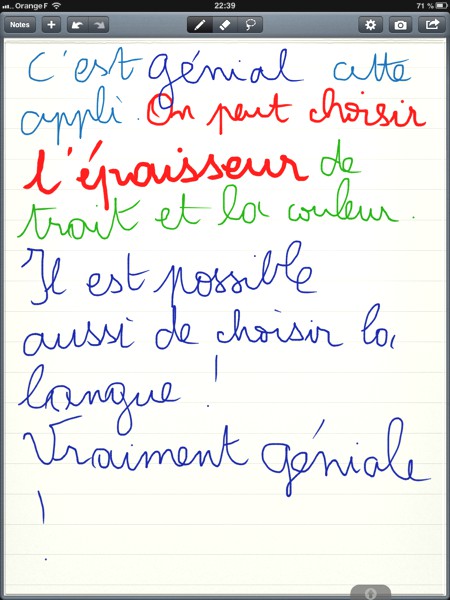 Orange F 22:39 71 %
Notes
C'est génial cette
appli. On peut choisir
l'épaisseur de
trait et la couleur.
Il est possible
aussi de choisir la
langue !
Vraiment géniale
!